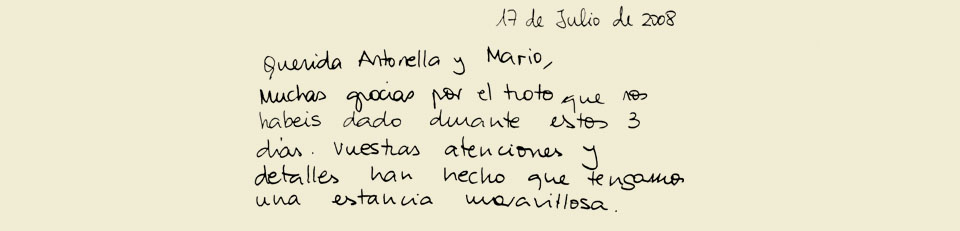 17 de Julio de 2008
Querida Antonella y Mario,
Muchas gracias por el trato que nos
habeis dado durante estos 3
días. Vuestras atenciones y
detalles han hecho que tengamos
una estancia maravillosa.